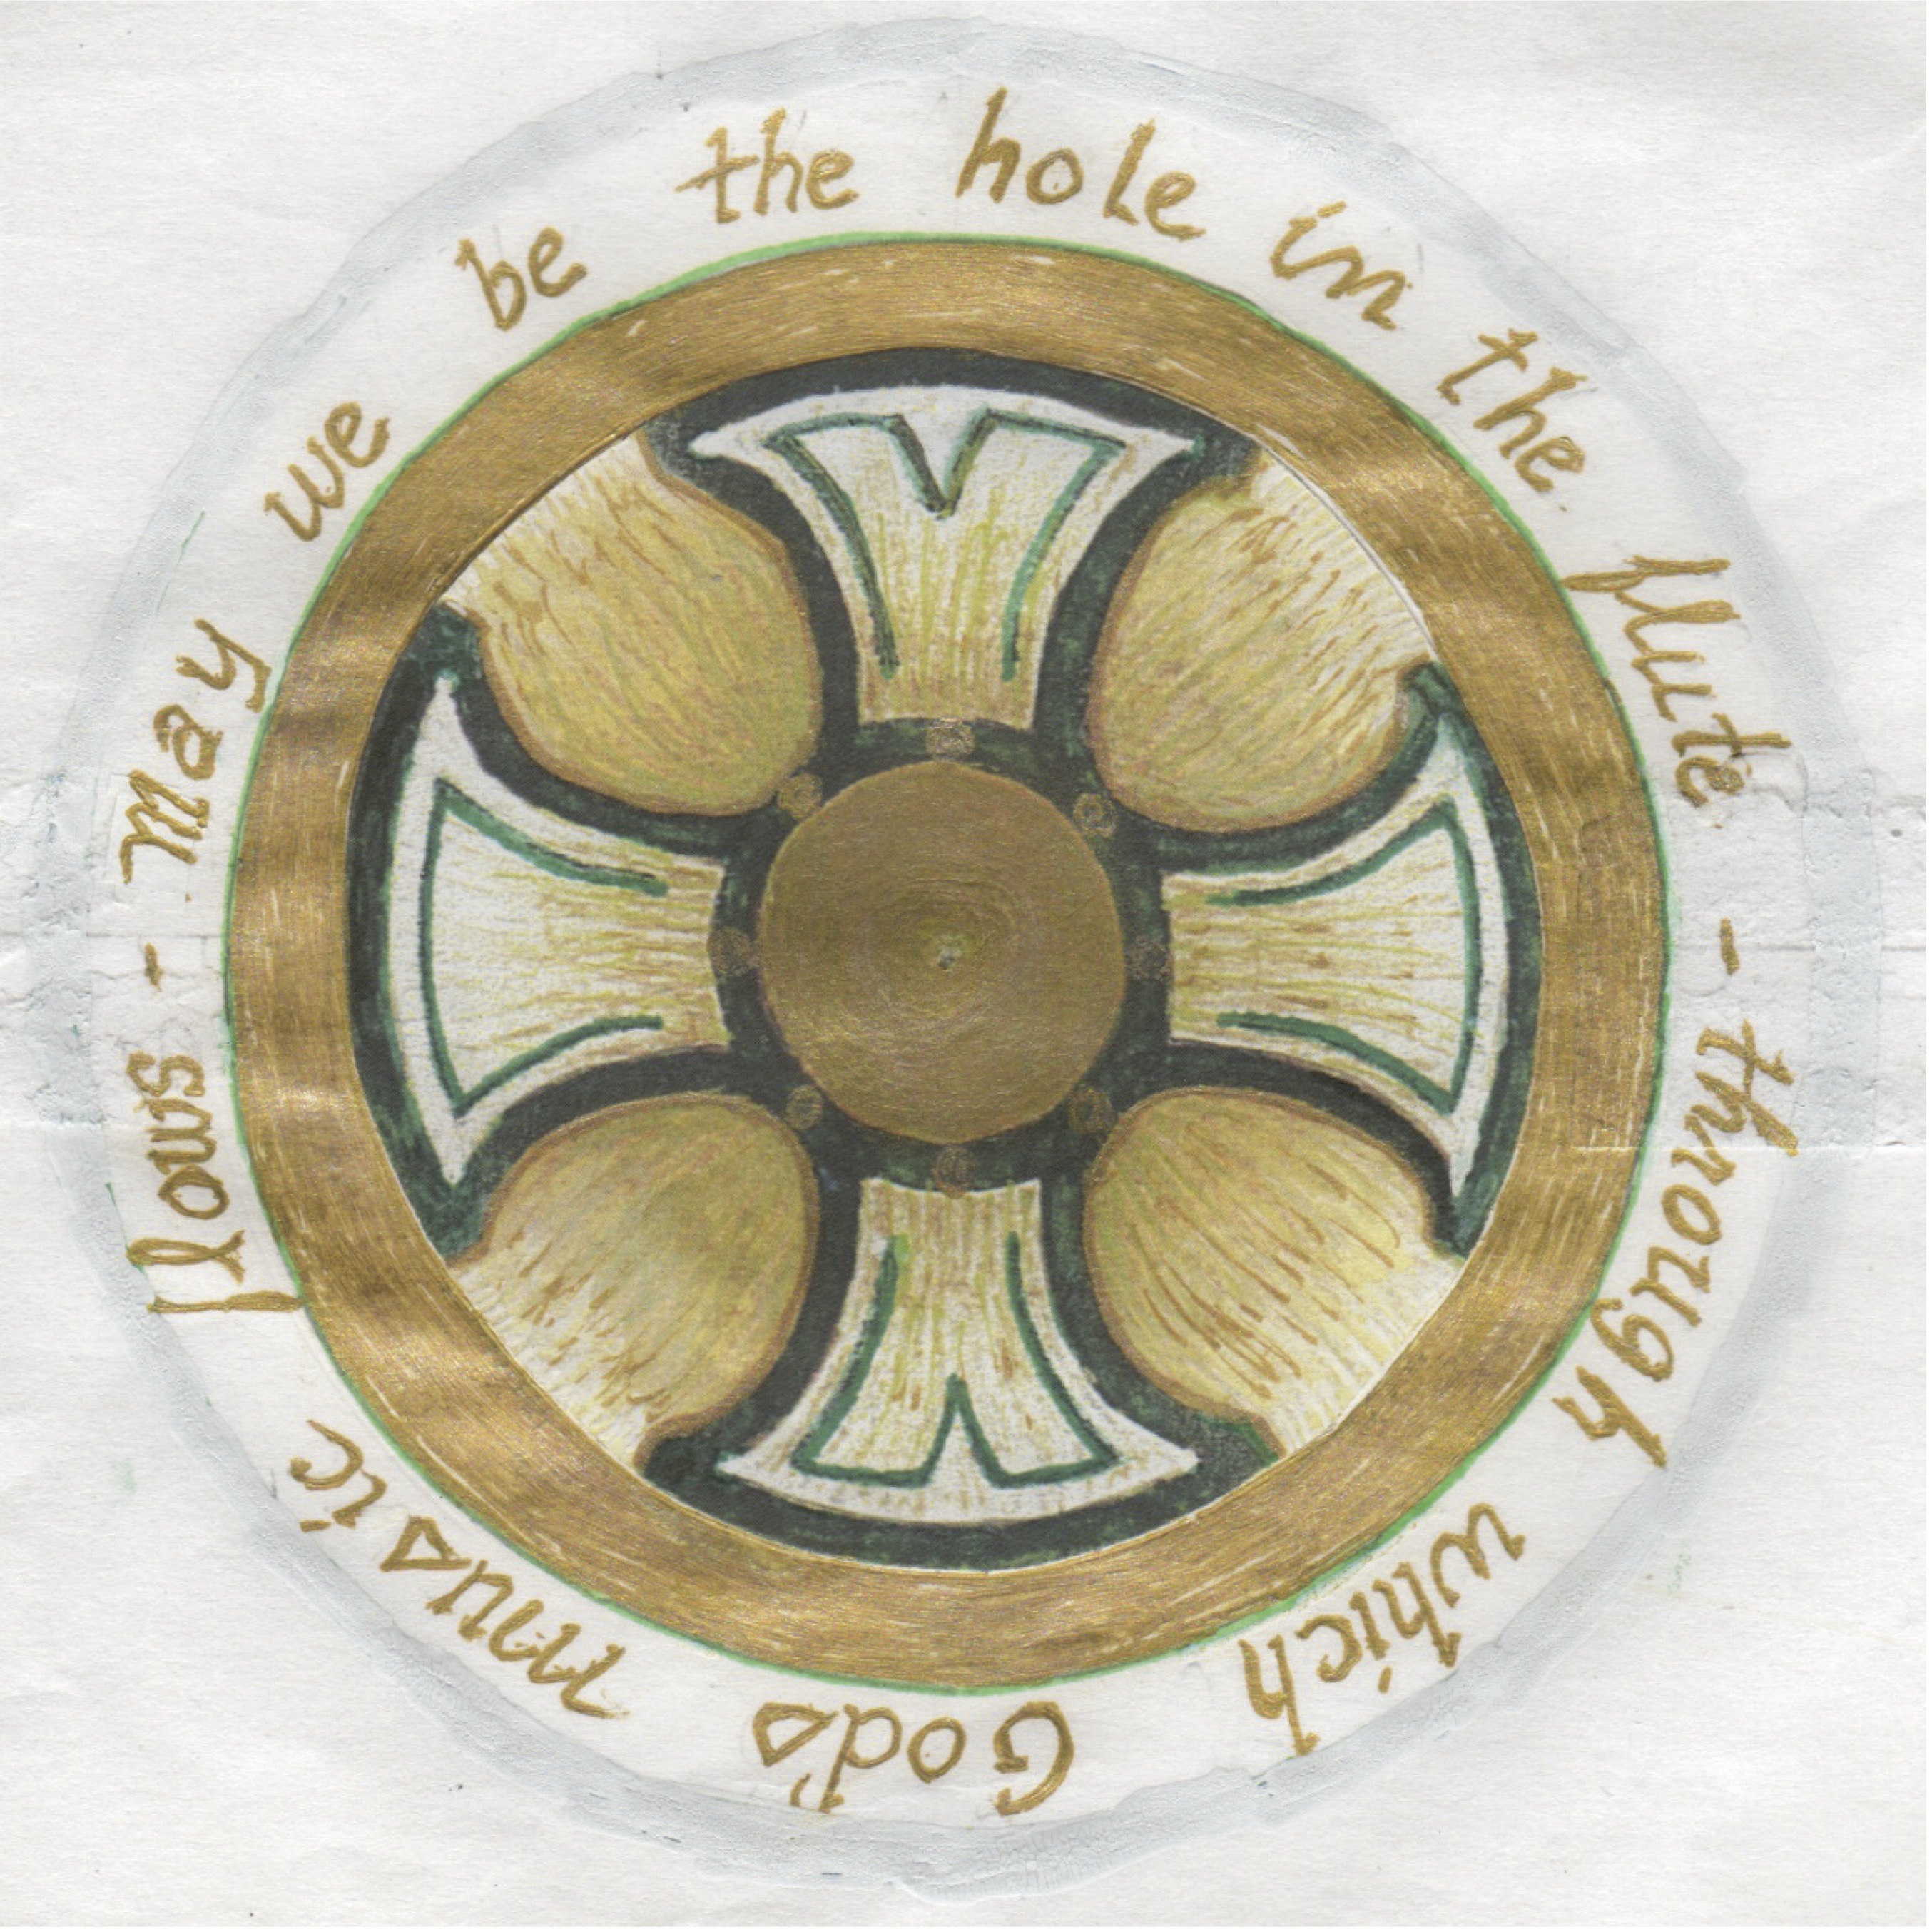 May we be the hole in the flute - through which God's music flows -